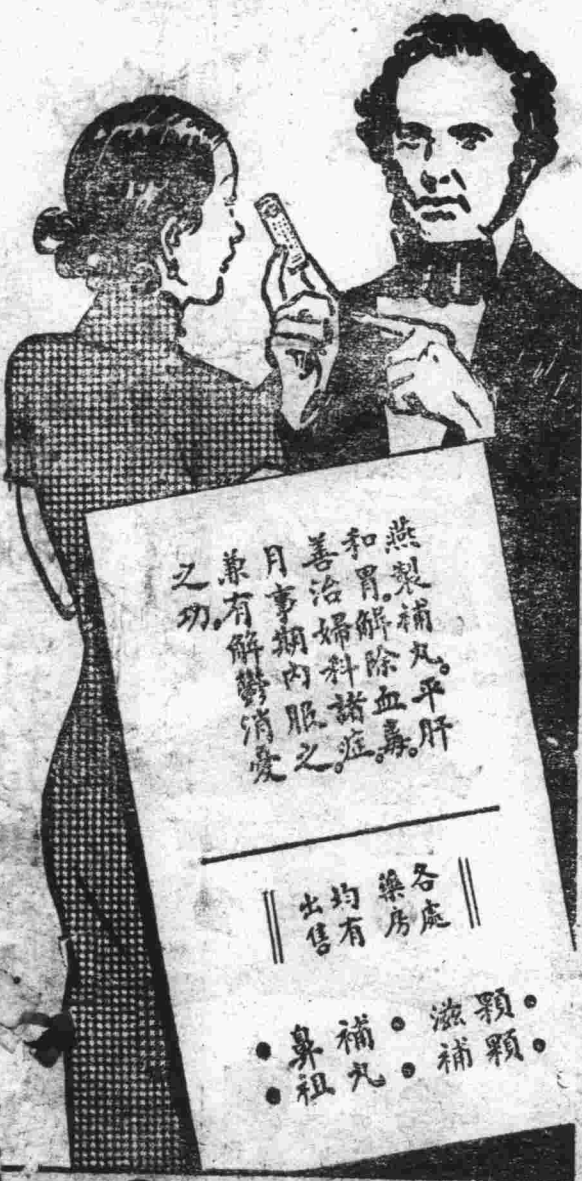 燕製補丸。平肝
和胃。解除血毒。
善治婦科諸症。
月事期內服之。
兼有解鬱消憂
之功。
各處
藥房
均有
出售
顆顆滋補
補丸鼻祖